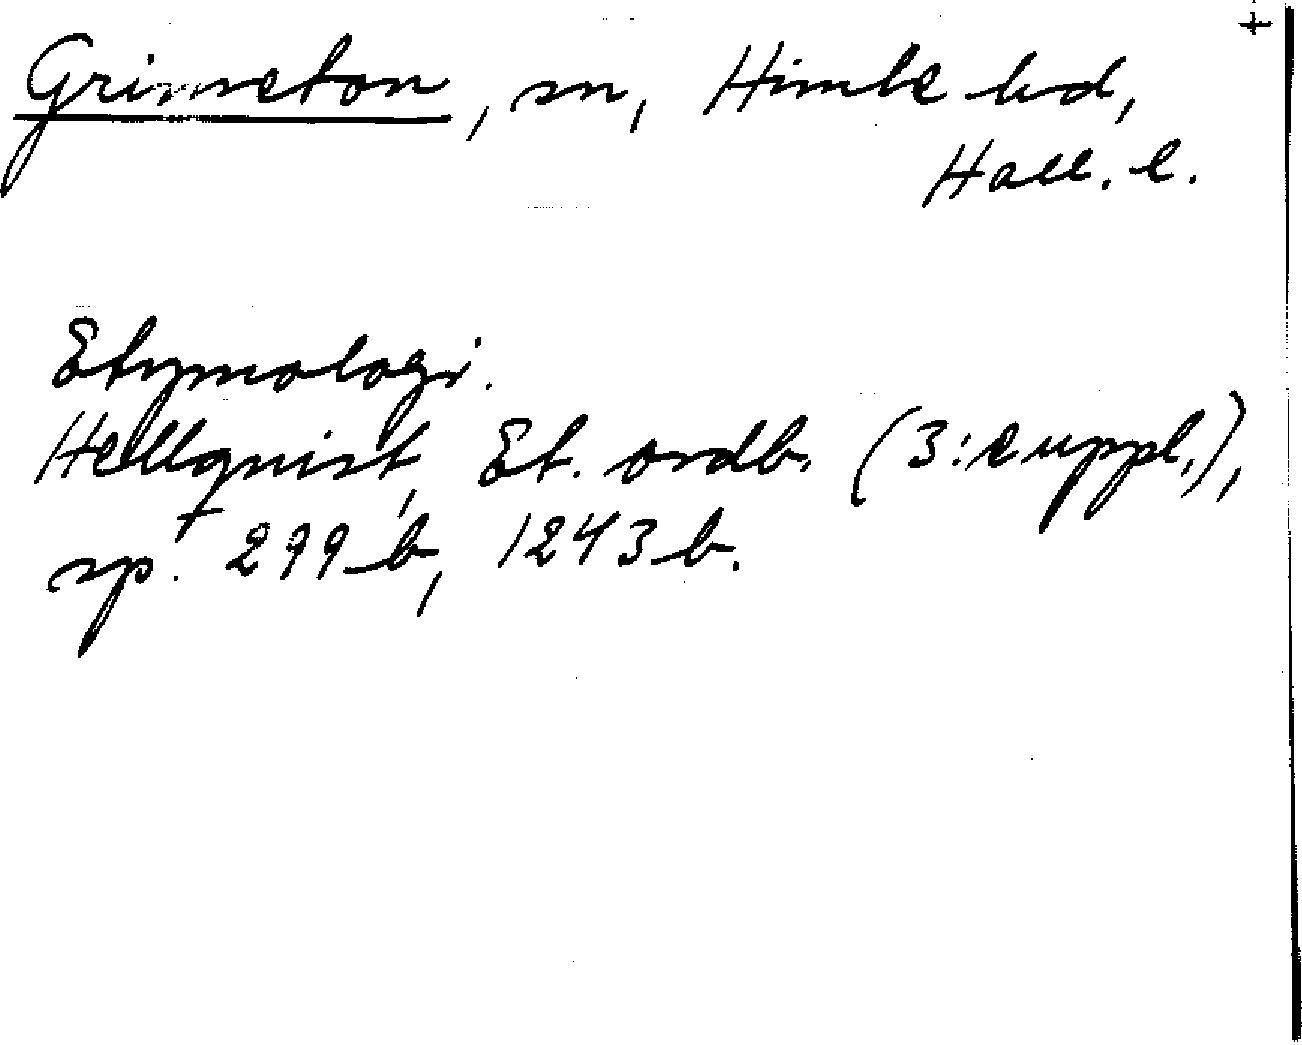 +
Grimeton, sn, Himle hd,
Hall. l.
Etymologi.
Hellquist, Et. ordb. (3:e uppl.),
sp. 299 b, 1243 b.